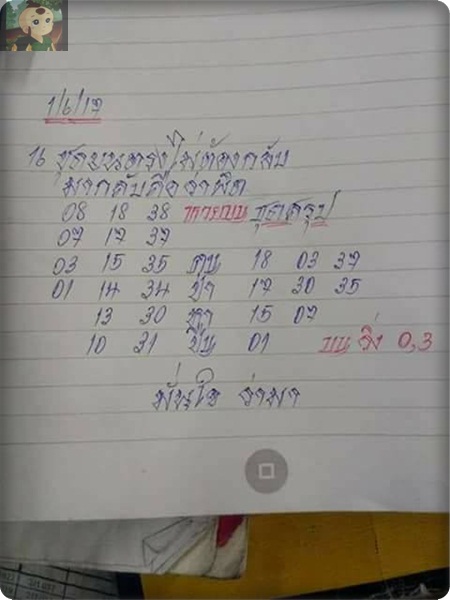 1/6/17
16 ชุดบนตรงไม่ต้องกลับ
มากลับคือว่าผิด
08 18 38 ชุดสรุป
07 17 37
03 15 35 18 03 37
01 14 34 17 30 35
13 30 15 07
10 31 01 บน วิ่ง 0,3
มั่นใจ ว่ามา